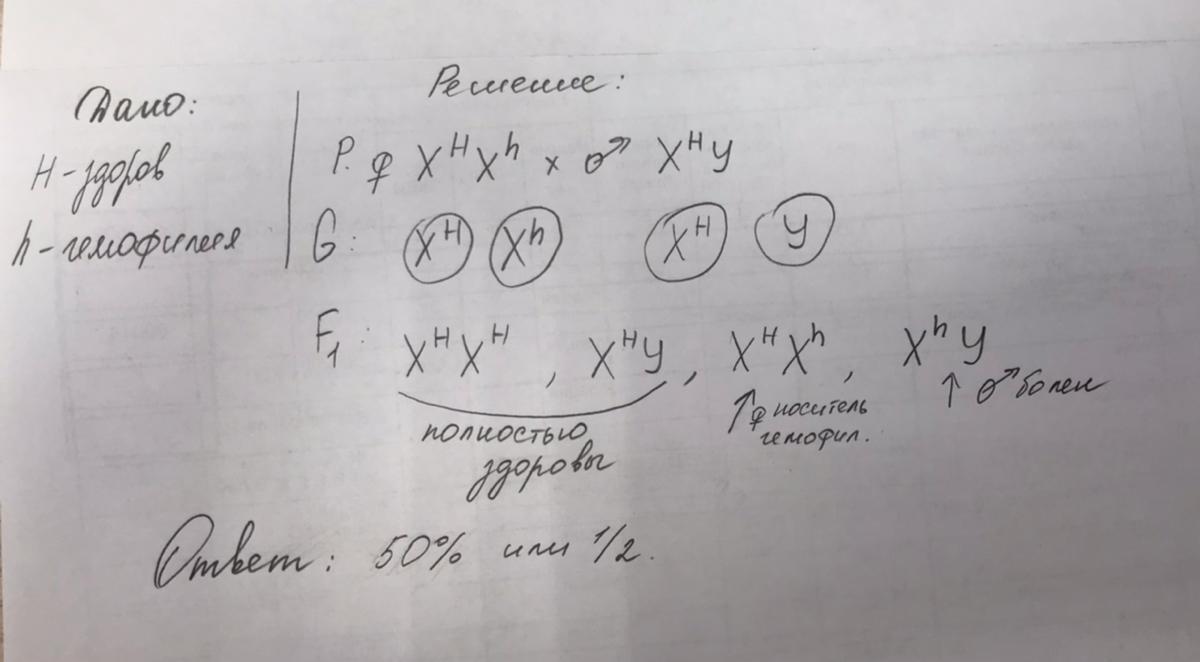 Дано:
H - здоров
h - гемофилия
Решение:
P. ♀ Xᴴ Xʰ × ♂ Xᴴ У
G: Xᴴ Xʰ Xᴴ У
F₁: XᴴXᴴ, XᴴУ, XᴴXʰ, XʰУ
полностью
здоровы
↑ ♀ носитель
гемофил.
↑ ♂ болен
Ответ: 50% или 1/2.